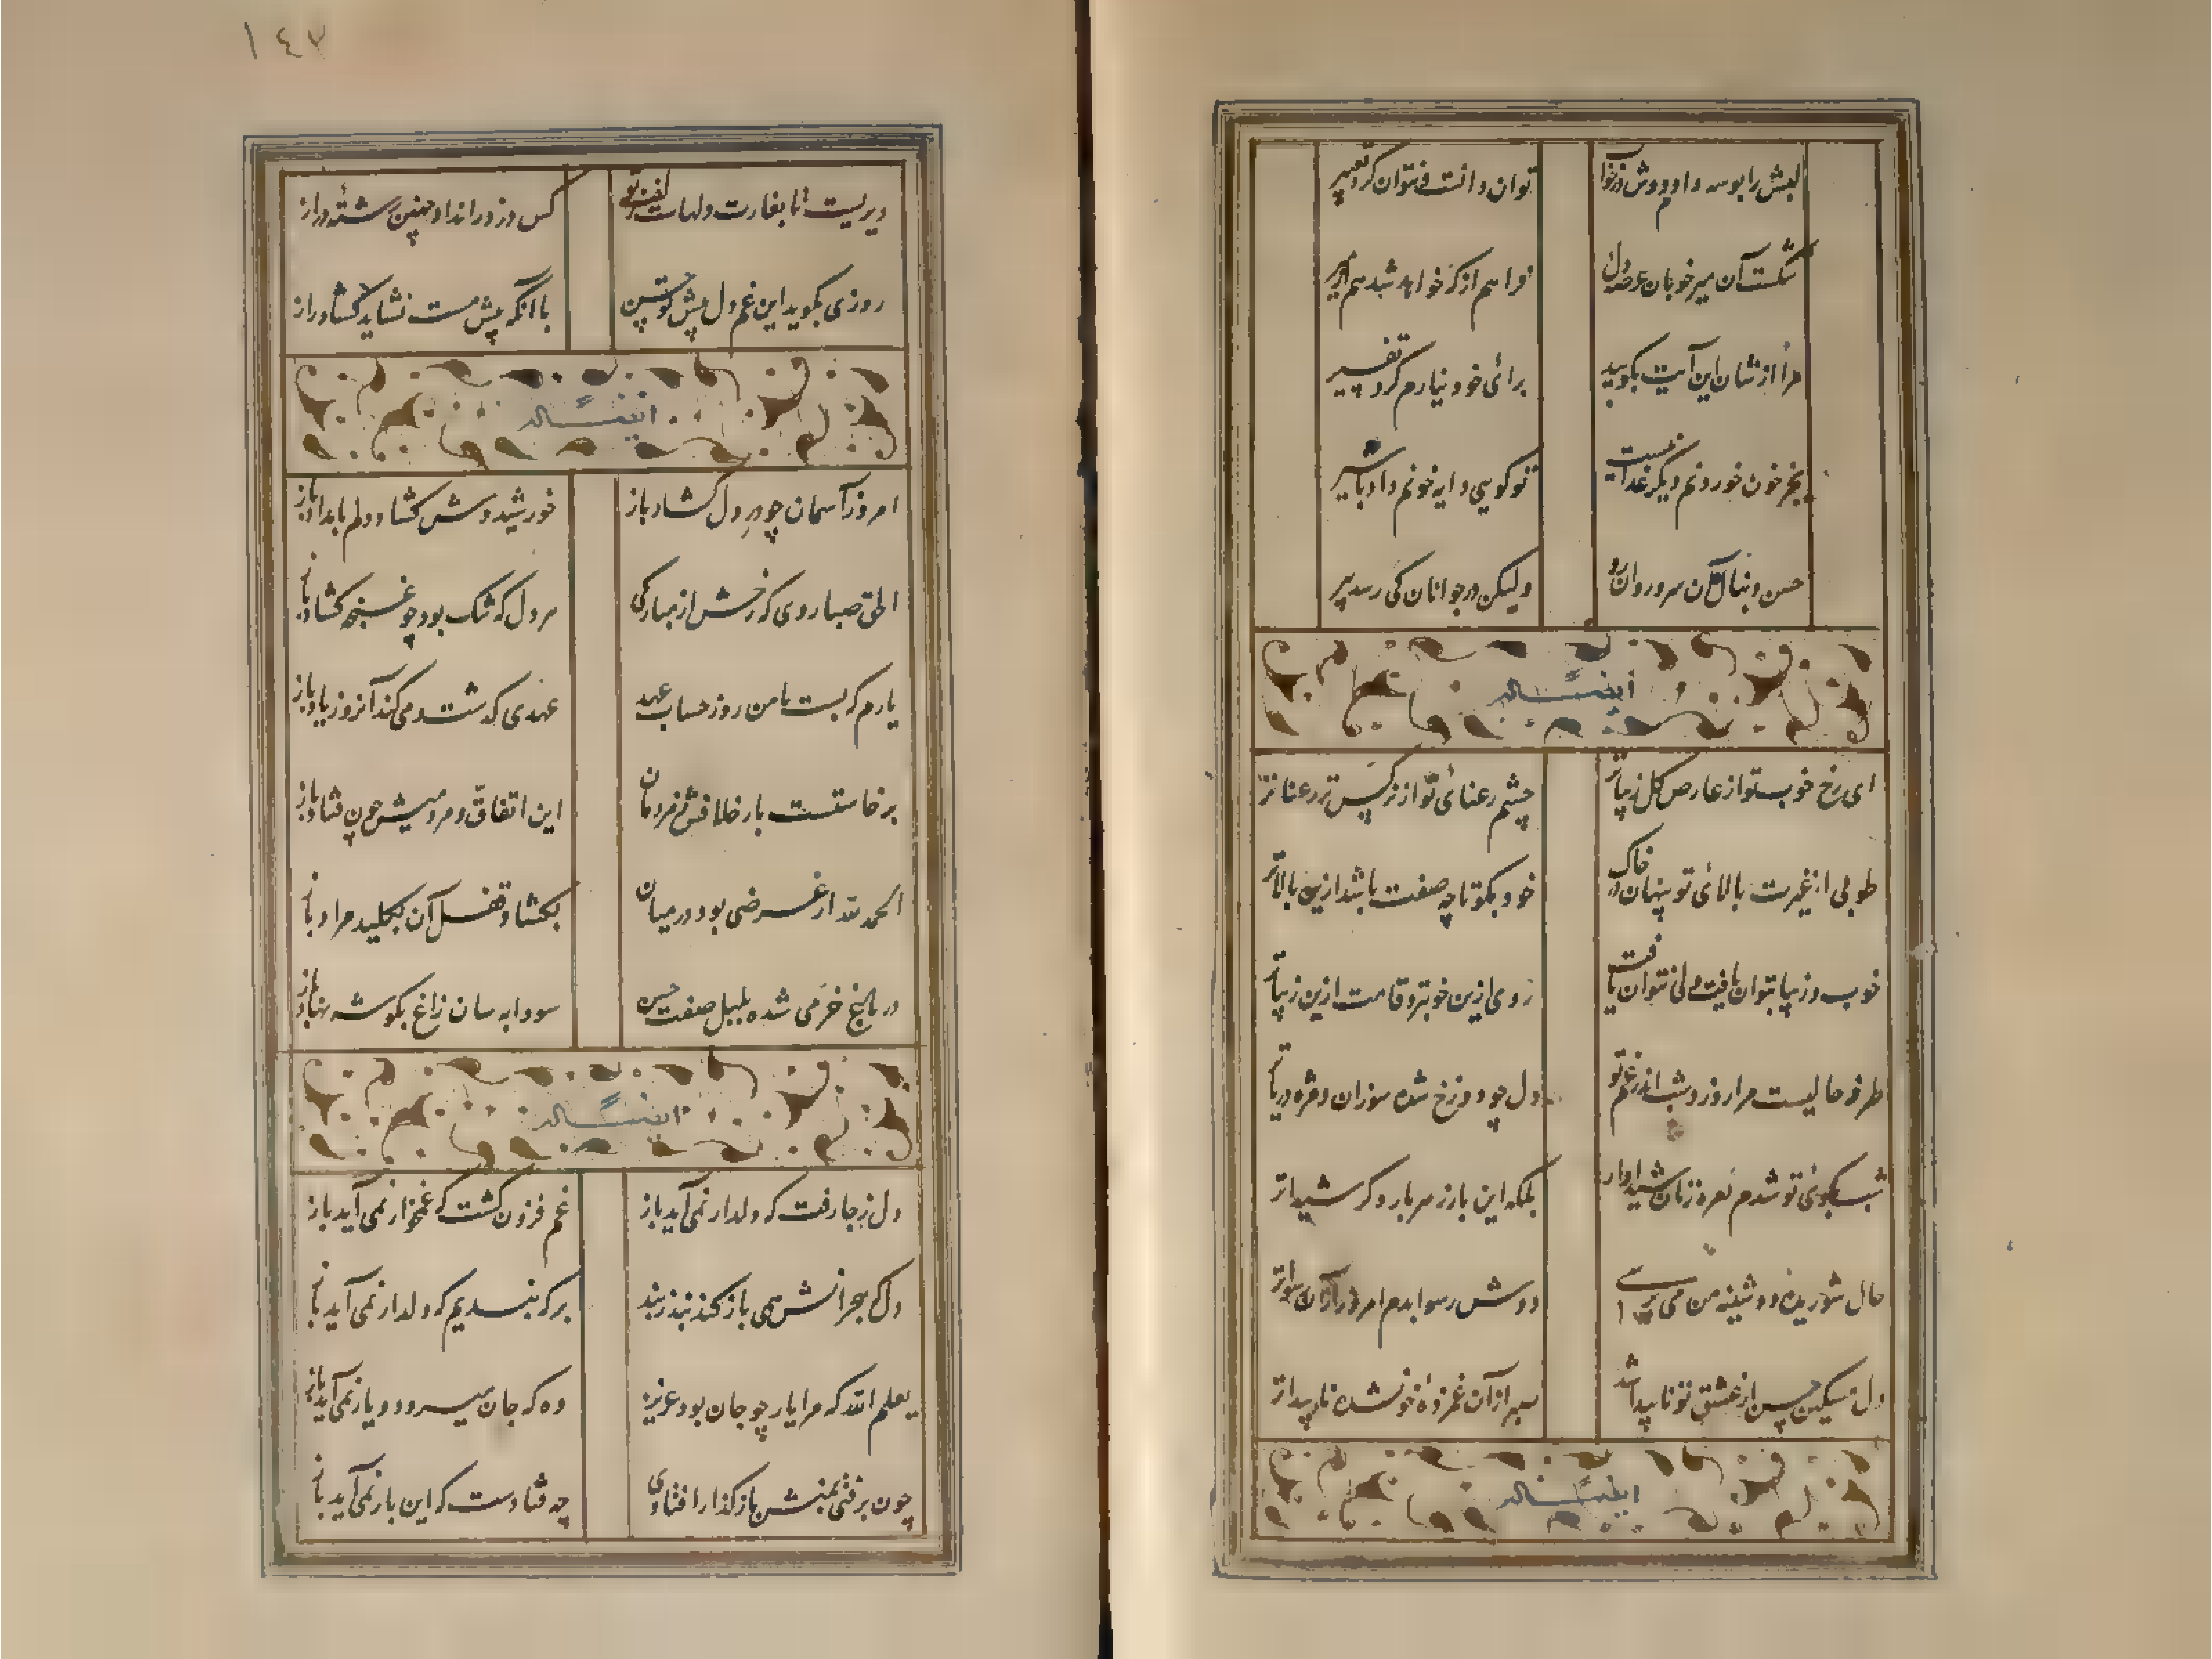 لبش را بوسه دادم دوش در خواب
توان دانست نتوان کرد تعبیر
شکست آن میر خوبان عرصه دل
مرا از شان این آیت بگویید
برای خود نیارم کرد تفسیر
بجز خون خوردنم دیگر غذا نیست
تو گویی دایه خونم داد با شیر
حسن دنبال آن سرو روان رو
ولیکن در جوانان کی رسد پیر
ایضا له
ای رخ خوب تو از عارض گل زیباتر
چشم رعنای تو از نرگس تر رعناتر
طوبی از غیرت بالای تو پنهان در خاک
خود بگو تا چه صفت باشد ازین بالاتر
خوب و زیبا بتوان یافت ولی نتوان یافت
روی ازین خوبتر و قامت ازین زیباتر
طرفه حالیست مرا روز و شب اندر غم تو
دل چو دوزخ شده سوزان و مژه دریاتر
شب بکوی تو شدم نعره زنان شیداوار
بلکه این بار ز هر بار دگر شیداتر
حال شوریده دوشینه من می پرسی
دوش رسوا بدم امروز از آن رسواتر
دل مسکین حسن از عشق تو ناپیدا شد
صبر از آن غمزده خون شده ناپیداتر
ایضا له
١٤٧
دیریست تا بغارت دلهاست زلف تو
کس دزد را نداد چنین رشته دراز
روزی بگوید این غم دل پیش تو حسن
با آنکه پیش مست نشاید گشاد راز
ایضا له
امروز آسمان چو در دل گشاد باز
خورشیدوش گشاد دلم بامداد باز
الحق صبا روی که رخش از مبارکی
هر دل که تنگ بود چو غنچه گشاد باز
یارم که بست با من روز حساب عهد
عهدی گذشت و می کند آنروز یاد باز
این اتفاق و مردمیش چون فتاد باز
الحمدلله ار غرضی بود در میان
بگشاد قفل آن بکلید مراد باز
در باغ خرمی شده بلبل صفت حسن
سودا به سان زاغ بگوشه نهاد باز
ایضا له
دل ز جا رفت که دلدار نمی آید باز
غم فزون گشت که غمخوار نمی آید باز
بر که بندیم که دلدار نمی آید باز
یعلم الله که مرا یار چو جان بود عزیز
وه که جان میرود و یار نمی آید باز
چه فتادست که این بار نمی آید باز